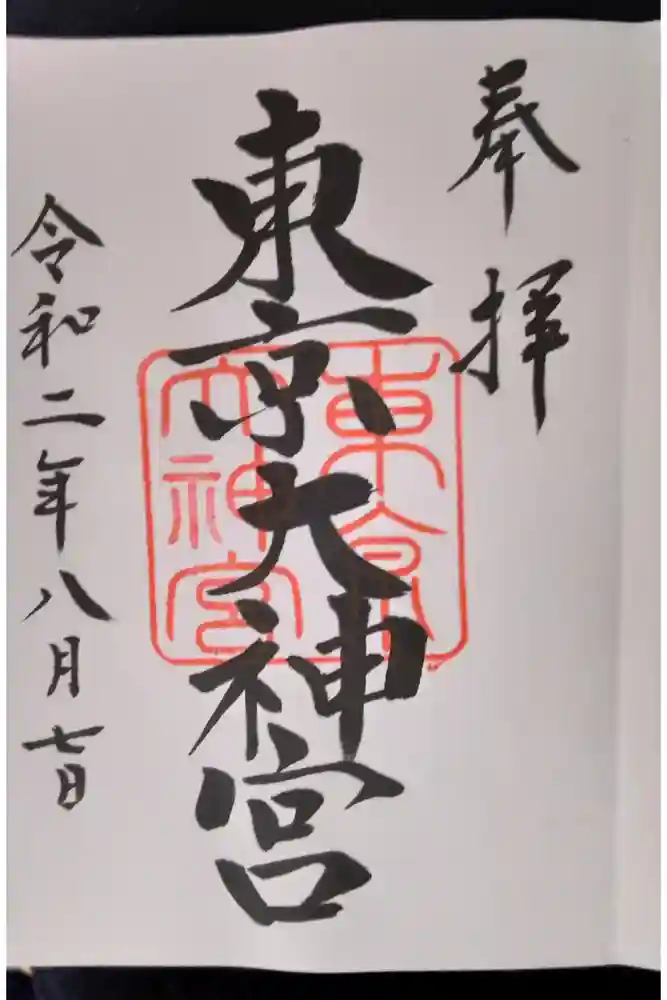 奉拝
東京大神宮
東京
大神宮
令和二年八月七日